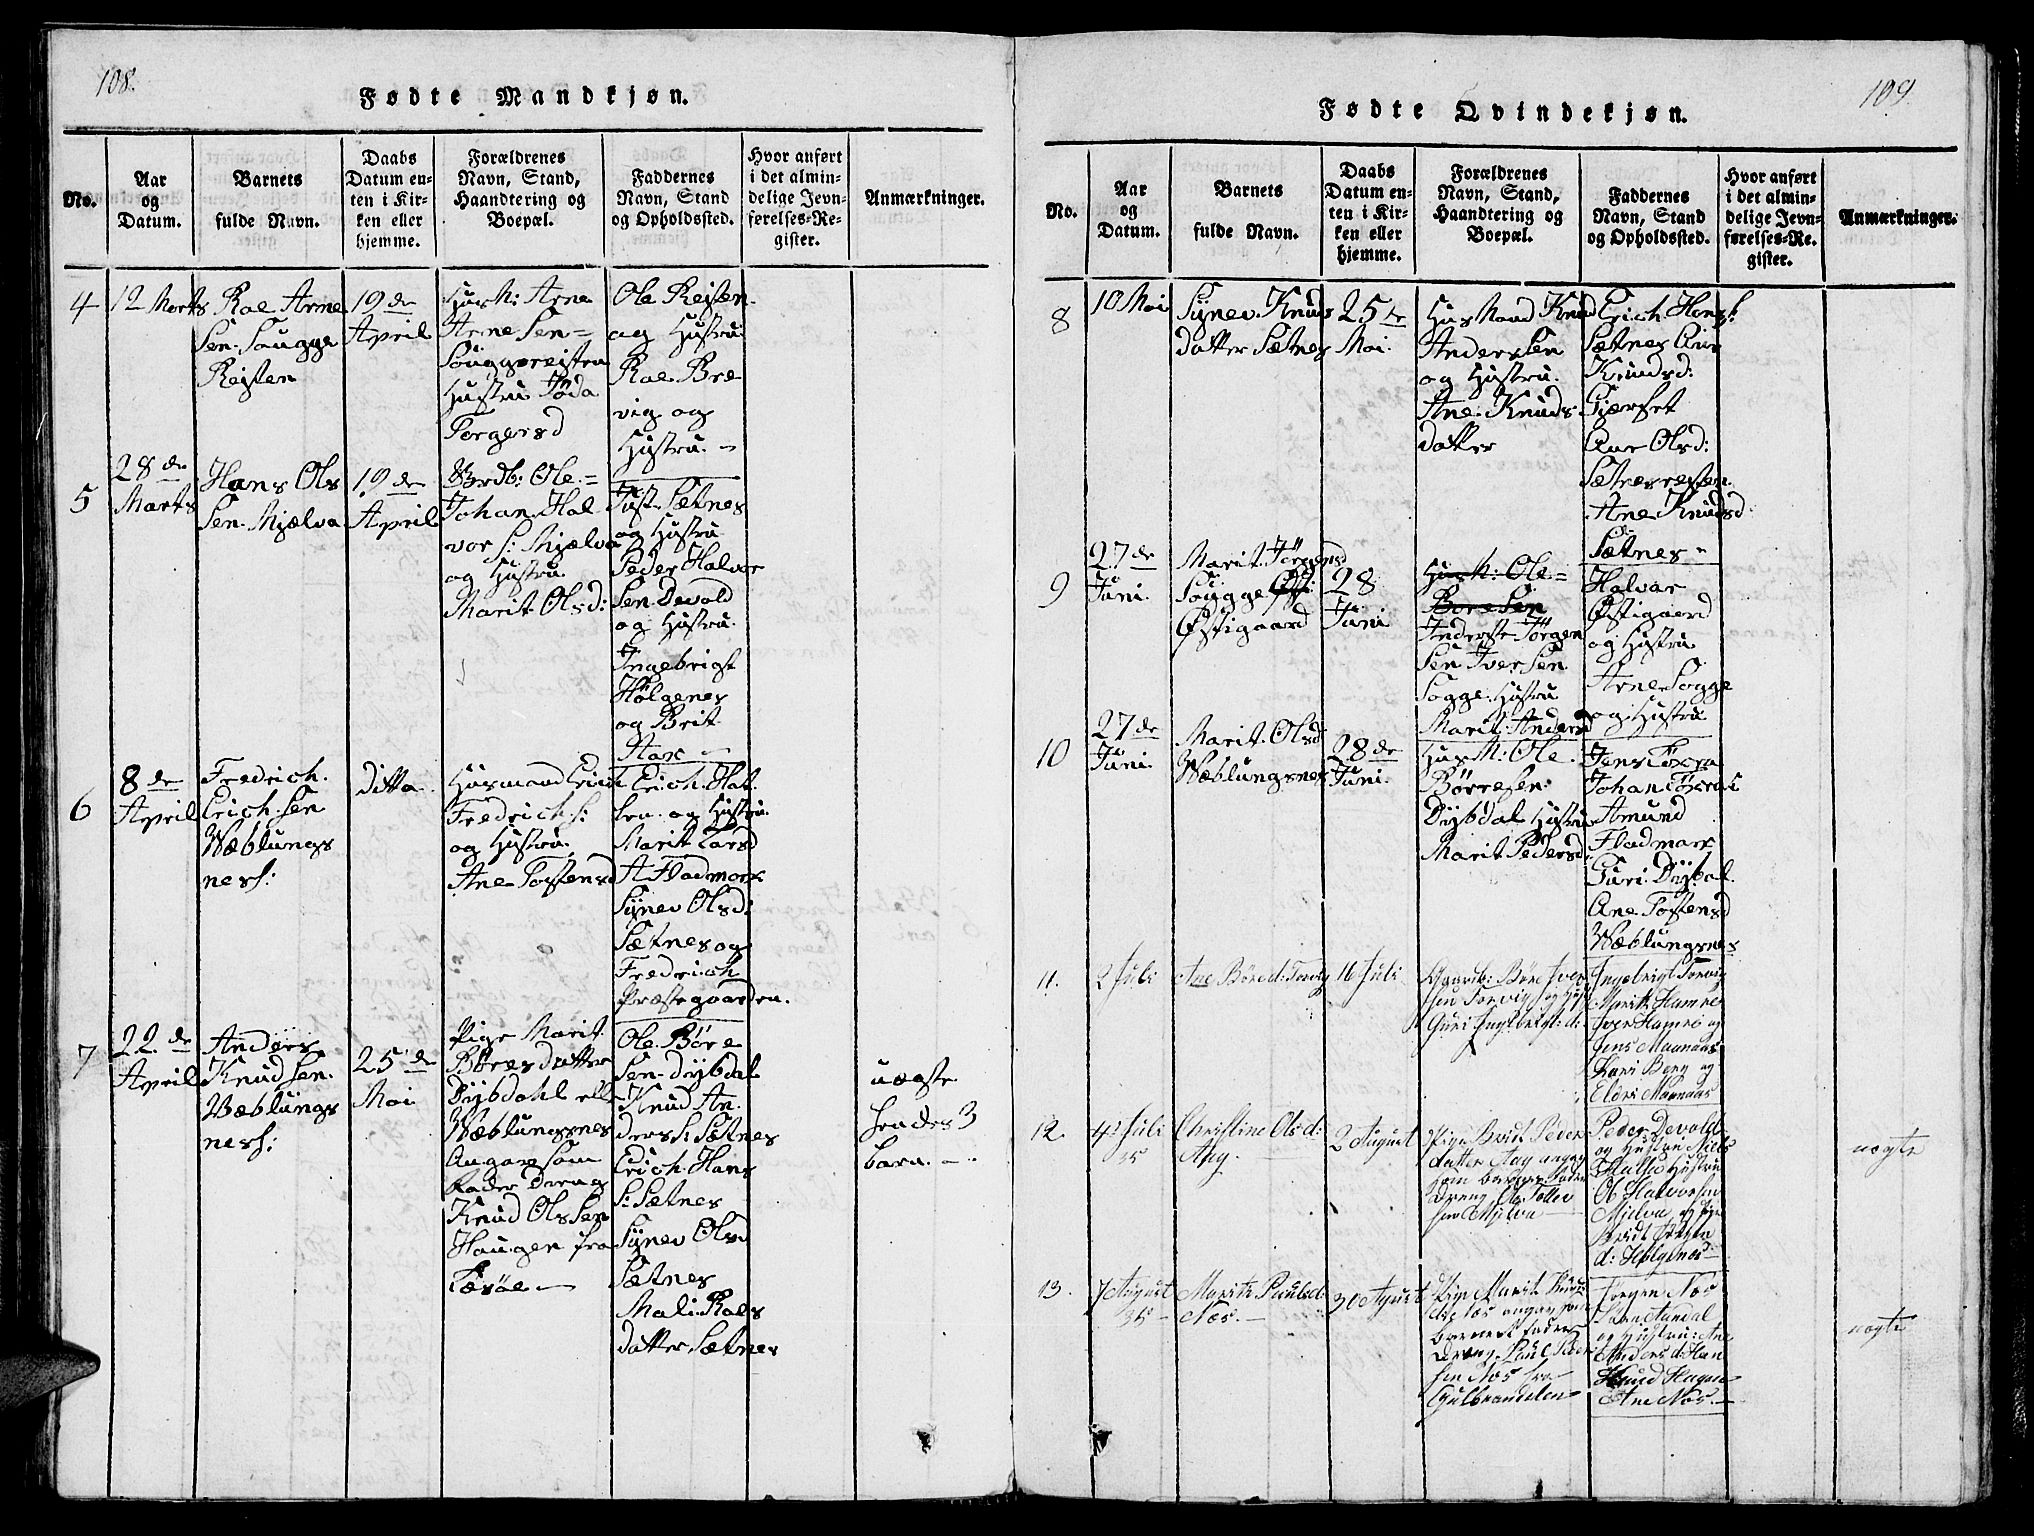 108.
Fødte Mandkjøn.
No.
Aar
og
Datum.
Barnets
fulde Navn.
Daabs
Datum en-
ten i Kir-
ken eller
hjemme.
Forældrenes
Navn, Stand,
Haandtering og
Boepæl.
Faddernes
Navn, Stand
og Opholdssted.
Hvor anført
i det almin-
delige Jevn-
førelses-Re-
gister.
Anmærkninger.
4
12 Marts
Roe Arne
Sen. Sougge
Reisten
19 de
April
HusM: Arne
Arne Sen=
Souggereisten
Hustru
Torgersd
Ole Reisten.
og Hustru
Roe Bre
vig og
Hustru. –
5
28 de
Marts
Hans Ols
Sen. Mjælva
19 de
April
Grdb: Ole.=
Johan. Hal
vor S: Mjælva
og Hustru.
Marit. Olsd:
Just. Sætnes
og Hustru
Peder Halvor
Sen. Devold
og Hustru.
Ingebrigt
Hølgenes
og Brit.
6
8 de
April
Fredrich.
Erich. Sen
Wæblungs
ness:
ditto.
Husmand Erich
Fredrich. s:
og Hustru.
Ane Tostensd
Erich. Hat
len. og Hustru.
Marit Larsd
A Flodmark
Synev Olsd:
Sætnes og
Fredrich
Præstegaarden.
7
22. de
April
Anders
Knud sen.
Wæblungs
ness:
25 de
Mai
Pige Marit.
Børes datter
Dybdahl ell
Wæblungsnes
Angav som
Fader Dreng
Knud Ols Sen
Haugen fra
Læsøe –
Ole Børe
Sen. dybdal
Knud An.
ders S: Sætnes
Erich. Hans
S: Sætnes
Synev Olsd
Sætnes
Mali. Roes
datter. Sætnes
uægte
hendes 3
barn. –
109.
Fødte Qvindekjøn.
No.
Aar
og
Datum.
Barnets
fulde Navn.
Daabs
Datum en-
ten i Kir-
ken eller
hjemme.
Forældrenes
Navn, Stand,
Haandtering og
Boepæl.
Faddernes
Navn, Stand
og Opholdssted.
Hvor anført
i det almin-
delige Jevn-
førelses-Re-
gister.
Anmærkninger.
8
10 Mai
Synev. Knuds
datter Sætnes
25 te
Mai.
HusMand Knud
Anders Sen
og Hustru.
Ane. Knuds
datter
Erich. Hans s:
Sætnes Ane
Knudsd:
Gjerset
Ane Olsd:
Sætresreisten.
Ane Knudsd
Sætnes –
9
27 de
Juni.
Marit. Jørgensd
Sougge
Østigaard
28
Juni
HusM: Ole.=
Børe Sen
Inderste Jørgen
Sen Iver Sen
Sogge. Hustru
Marit. Andersd
Halvor
Østigaard
og Hustru
Arne Sogge
og Hustru.
10
27 de
Juni.
Marit. Olsd
Wæblungsnes
28 de
Juni.
HusM: Ole.
Børresen.
Dybdal Hustru
Marit Pedersd
Jens
Johan
Amund
Flodmark
Guri. Dybal.
Ane. Tostensd
Wæblungsnes
11.
2 Juli
Ane Børed: Torvig
16 Juli
Gaardb: Børe Iver
sen Torvig og Hust
Guri Ingebrigt: d:
Ingebrigt Torvig
Marit Hamre
Iver Hamre og
Jens Maanaas
Kari Berg og
Eldri Maanaas
12.
4 Juli
35
Christine Olsd:
Aag.
2 August
Pige Brit Peder
datter Aag angav
som barnets Fader
Dreng Ole Tolle
sen Mjelva
Peder Devold
og Hustru Niels
Hustru
Ole Halvorsen
Mjelva og Pige
Brit Jørgen
d: Hølgenes
uægte
13.
7 August
35 –
Marit Paulsd.
Næs. –
30 August
Pige Marit Knuds
angav som
barnets fader
Dreng Paul Peder
sen Næs fra
Gulbrandalen
Jørgen Næs
og Hustru: Ane
Anders d:
Knud Hagen
Ane Næs. –
uægte